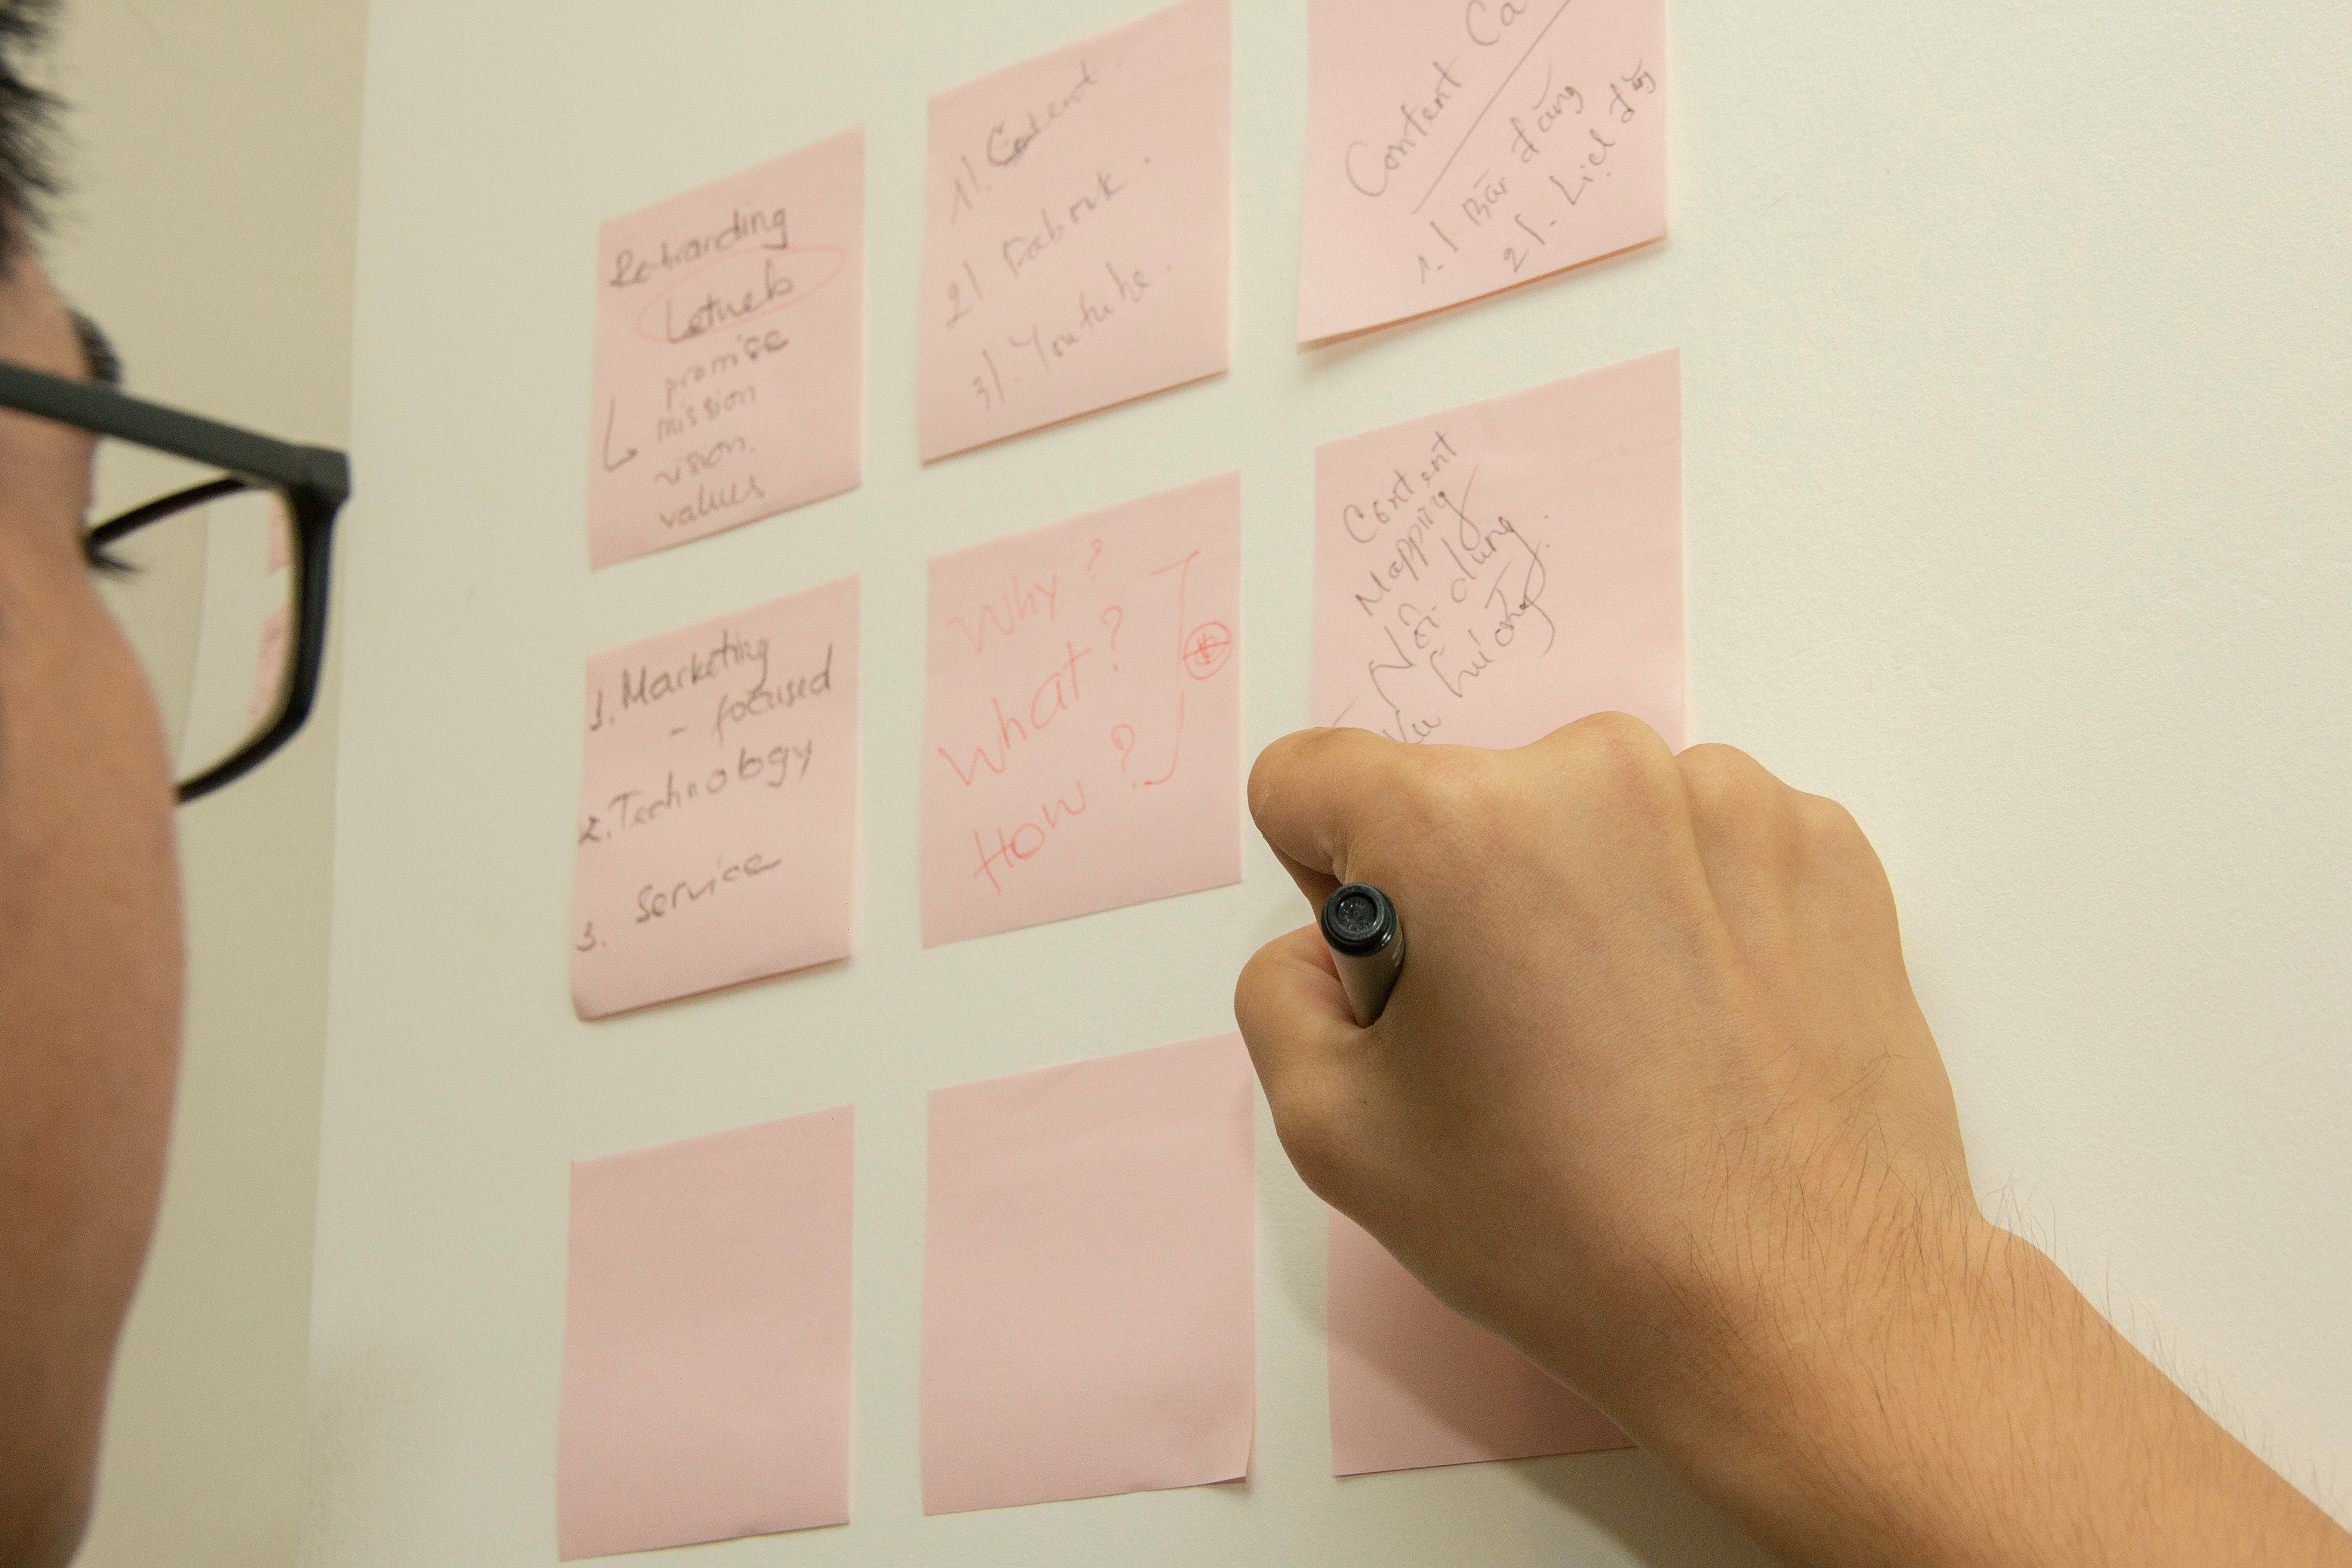 Re-branding
Letweb
promise
mission
vision.
values
1/. Content.
2/ Fabook.
3/. Youtube.
Content Ca
1./ Bài đăng
2/. Lịch đăng
1. Marketing
- focused
2. Technology
3. Service
Why?
What?
How?
Content
Mapping
Nội dung
hướng